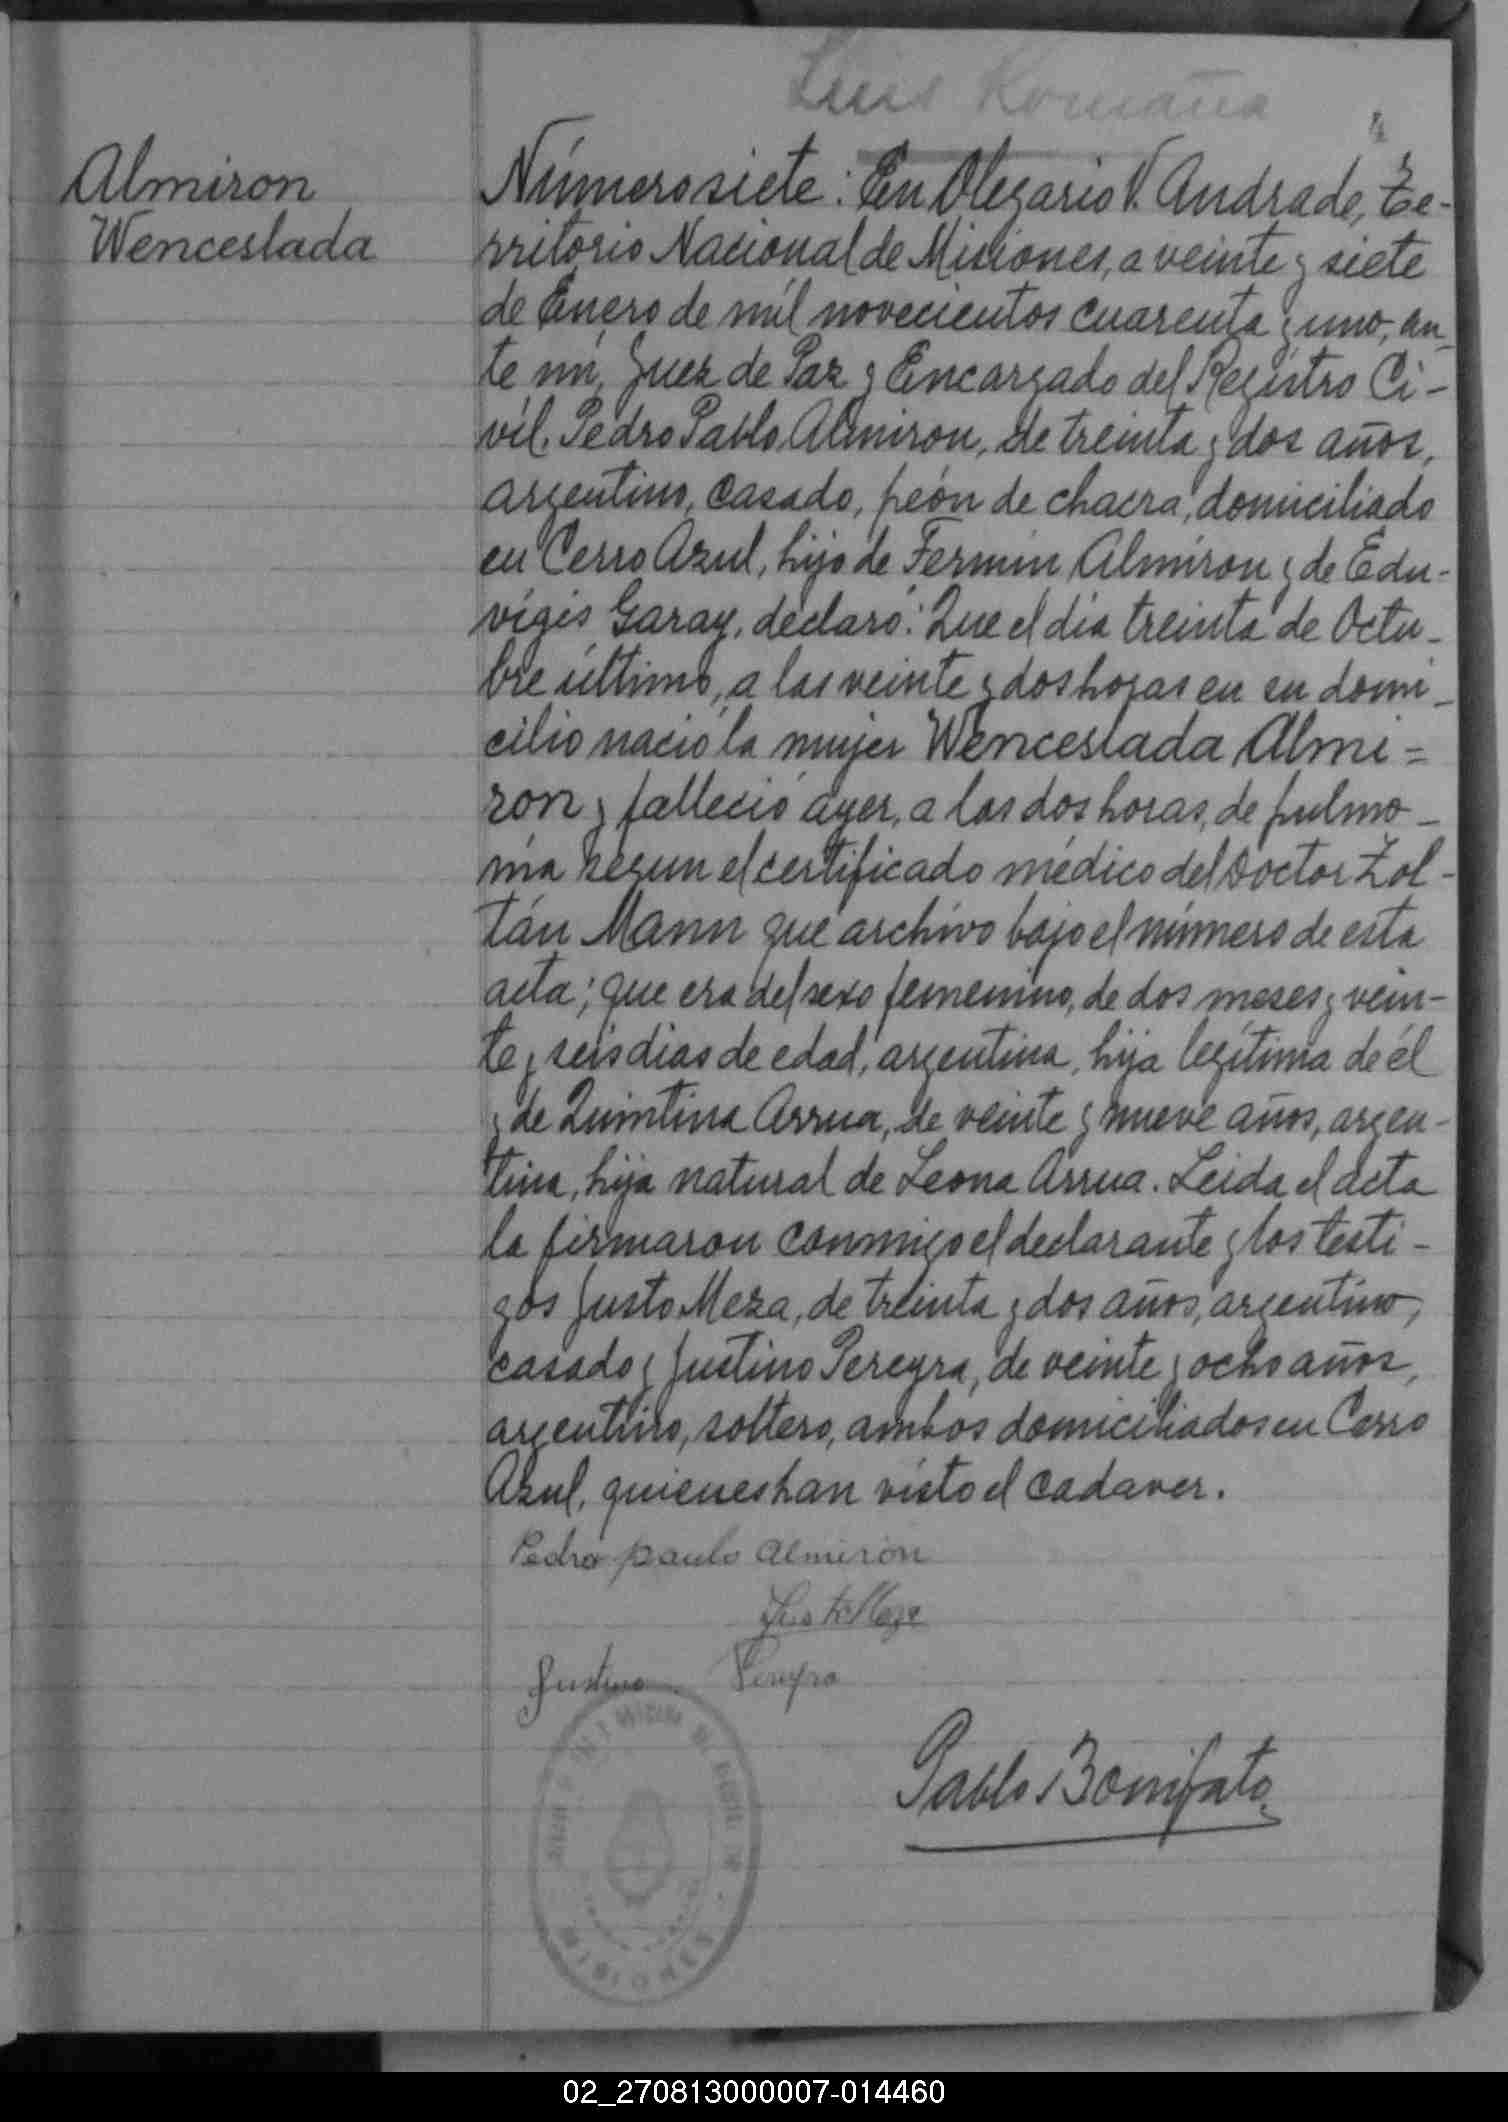 Luis Romaña
4
Almiron
Wenceslada
Número siete: En Olegario V. Andrade, Te-
rritorio Nacional de Misiones, a veinte y siete
de Enero de mil novecientos cuarenta y uno, an_
te mí, Juez de Paz y Encargado del Registro Ci-
vil, Pedro Pablo Almiron, de treinta y dos años,
argentino, casado, peón de chacra, domiciliado
en Cerro Azul, hijo de Fermín Almiron y de Edu-
vigis Garay, declaró: Que el día treinta de Octu-
bre último, a las veinte y dos horas en su domi_
cilio nació la mujer Wenceslada Almi=
ron y falleció ayer, a las dos horas, de pulmo_
nía según el certificado médico del Doctor Zol-
tán Mann que archivo bajo el número de esta
acta; que era del sexo femenino, de dos meses y vein-
te y seis dias de edad, argentina, hija legítima de él
y de Quintina Arrua, de veinte y nueve años, argen-
tina, hija natural de Leona Arrua. Leida el acta
la firmaron conmigo el declarante y los testi-
gos Justo Meza, de treinta y dos años, argentino,
casado y Justino Pereyra, de veinte y ocho años,
argentino, soltero, ambos domiciliados en Cerro
Azul, quienes han visto el cadaver.
Pedro paulo almirón
Justo Meza
Justino Pereyra
Pablo Bonifato
MISIONES
02_270813000007-014460